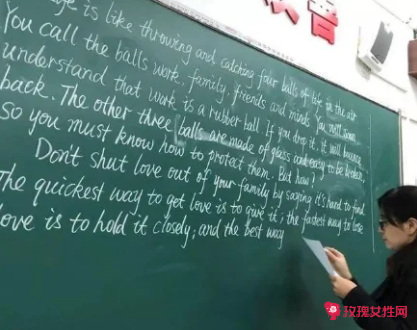 is like throwing and catching four balls of life in the air
You call the balls work, family, friends and minds. You will soon
understand that work is a rubber ball. If you drop it, it will bounce
back. The other three balls are made of glass and easy to be broken,
so you must know how to protect them. But how?
Don't shut love out of your family by saying it's hard to find.
The quickest way to get love is to give it; the fastest way to lose
love is to hold it closely; and the best way
玫瑰女性网